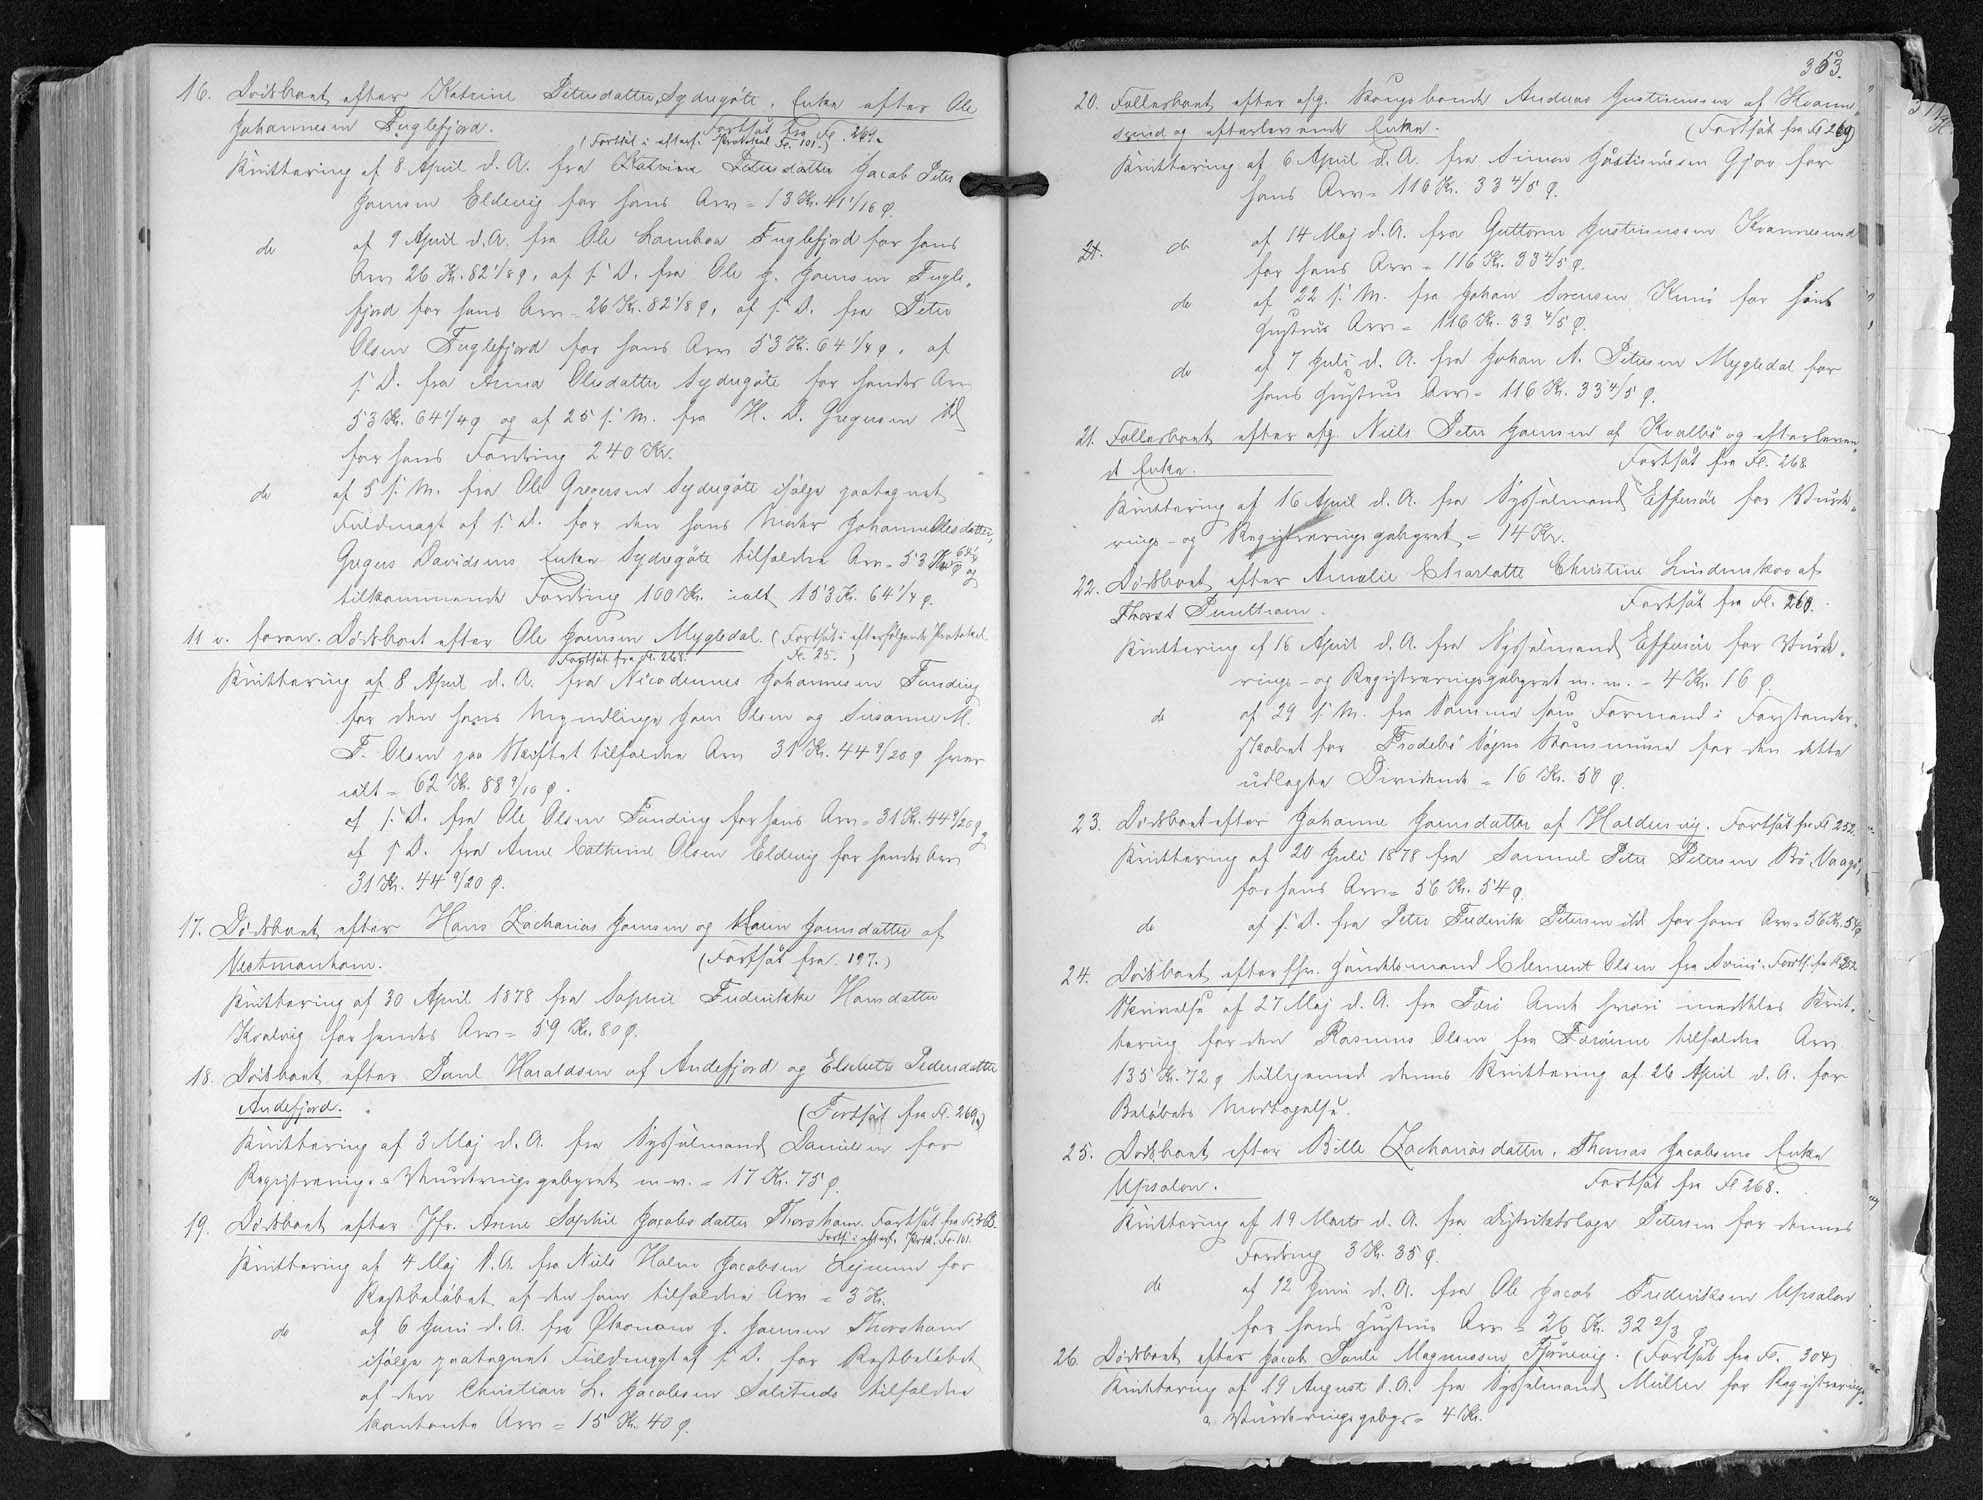 16. Dödsboet efter Katrine Petersdatter, Sydregöte, Enke efter Ole
Johannesen Fuglefjord. Fortsat fra Fl. 264.
(Fortsat i efterf. Protokol Fl. 101.)
Kvittering af 8 April d. A. fra Katrine Petersdatter Jacob Peter
Joensen Eldevig for hans Arv = 13 Kr. 41 1/16 Ø.
do af 9 April d. A. fra Ole Lamhoa Fuglefjord for hans
Arv 26 Kr. 82 1/8 Ø, af s. D. fra Ole J. Joensen Fugle-
fjord for hans Arv = 26 Kr. 82 1/8 Ø, af s. D. fra Peter
Olsen Fuglefjord for hans Arv 53 Kr. 64 1/4 Ø, af
s. D. fra Anna Olesdatter Sydregöte for hendes Arv
53 Kr. 64 1/4 Ø og af 25 s. M. fra H. D. Gregersen ibd
for hans Fordring 240 Kr.
do af 5 s. M. fra Ole Gregersen Sydregöte ifölge paategnet
Fuldmagt af s. D. for den hans Moder Johanne Olesdatter,
Gregers Davidsens Enke Sydregöte tilfaldne Arv = 53 Kr. 64 1/4 Ø og
tilkommende Fordring 100 Kr. ialt 153 Kr. 64 1/4 Ø.
11 v. foran. Dödsboet efter Ole Joensen Mygledal. (Fortsat i efterfölgende Protokol
Fortsat fra Fl. 268. Fl. 25.)
Kvittering af 8 April d. A. fra Nicodemus Johannesen Funding
for den hans Myndlinge Joen Olsen og Susanne M.
F. Olsen paa Skiftet tilfaldne Arv 31 Kr. 44 9/20 Ø hver
ialt = 62 Kr. 88 9/10 Ø.
af s. D. fra Ole Olsen Funding for hans Arv = 31 Kr. 44 9/20 Ø
af s. D. fra Anne Cathrine Olsen Eldevig for hendes Arv
31 Kr. 44 9/20 Ø.
17. Dödsboet efter Hans Zacharias Joensen og Maren Joensdatter af
Vestmanhavn. (Fortsat fra 197.)
Kvittering af 30 April 1878 fra Sophie Frederikke Hansdatter
Kvalvig for hendes Arv = 59 Kr. 80 Ø.
18. Dödsboet efter Poul Haraldsen af Andefjord og Elsebeth Pedersdatter
Andefjord. (Fortsat fra Fl. 260.)
Kvittering af 3 Maj d. A. fra Sysselmand Danielsen for
Registrerings- & Vurderingsgebyret m. v. = 17 Kr. 75 Ø.
19. Dödsboet efter Jfr. Anne Sophie Jacobsdatter Thorshavn. Fortsat fra Fl. 268.
Forts. i efterf. Prtk. Fl. 101.
Kvittering af 4 Maj d. A. fra Niels Holm Jacobsen Lejnum for
Restbelöbet af den ham tilfaldne Arv = 3 Kr.
do af 6 Juni d. A. fra Økonom J. Joensen Thorshavn
ifölge paategnet Fuldmagt af s. D. for Restbelöbet
af den Christian L. Jacobsen Solitude tilfaldne
kontante Arv = 15 Kr. 40 Ø.
353.
20. Fællesboet efter afg. Kongsbonde Andreas Justinussen af Kvanne-
sund og efterlevende Enke. (Fortsat fra Fl 269)
Kvittering af 6 April d. A. fra Simon Justinussen Gjov for
hans Arv = 116 Kr. 33 4/5 Ø.
21. do af 14 Maj d. A. fra Guttorm Justinussen Kvannesund
for hans Arv = 116 Kr. 33 4/5 Ø.
do af 22 s. M. fra Johan Sörensen Kunö for hans
Hustrus Arv = 116 Kr. 33 4/5 Ø.
do af 7 Juli d. A. fra Johan A. Petersen Mygledal for
hans Hustrus Arv = 116 Kr. 33 4/5 Ø.
21. Fællesboet efter afg. Niels Peter Joensen af Kvalbö og efterleven-
de Enke. Fortsat fra Fl. 268
Kvittering af 16 April d. A. fra Sysselmand Effersöe for Vurde-
rings- og Registreringsgebyret = 14 Kr.
22. Dödsboet efter Amalie Charlotte Christine Lindenskov af
Punthavn. Fortsat fra Fl. 260.
Kvittering af 16 April d. A. fra Sysselmand Effersöe for Vurde-
rings- og Registreringsgebyret m. m. = 4 Kr. 16 Ø.
do af 29 s. M. fra Samme som Formand i Forstander-
skabet for Frodebö Sogns Kommune for den dette
udlagte Dividende = 16 Kr. 50 Ø.
23. Dödsboet efter Johanne Joensdatter af Haldersvig. Fortsat fra Fl 252.
Kvittering af 20 Juli 1878 fra Samuel Peter Petersen Bö Vaagö,
for hans Arv = 56 Kr. 54 Ø.
do af s. D. fra Peter Frederik Petersen ibd for hans Arv = 56 Kr. 54 Ø
24. Dödsboet efter fhv. Handelsmand Clement Olsen fra Svinö. Forts. fra Fl 252
Skrivelse af 27 Maj d. A. fra Færö Amt hvori meddeles Kvit-
tering for den Rasmus Olsen fra Færöerne tilfaldne Arv
135 Kr. 72 Ø tilligemed dennes Kvittering af 26 April d. A. for
Belöbets Modtagelse.
25. Dödsboet efter Bille Zachariasdatter, Thomas Jacobsens Enke
Upsalon. Fortsat fra Fl 268.
Kvittering af 19 Marts d. A. fra Distriktslæge Petersen for dennes
Fordring 3 Kr. 35 Ø.
do af 12 Juni d. A. fra Ole Jacob Frederiksen Upsalon
for hans Hustrus Arv = 26 Kr. 32 2/3 Ø
26. Dödsboet efter Jacob Pauli Magnussen Tjörnevig. (Fortsat fra Fl. 304)
Kvittering af 19 August d. A. fra Sysselmand Müller for Registrerings-
& Vurderingsgebyr = 4 Kr.